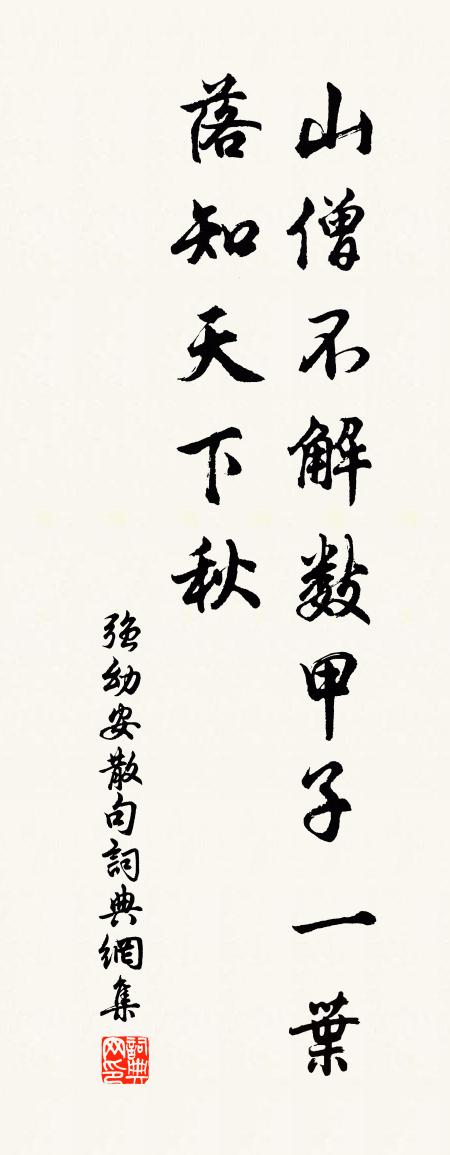 山僧不解数甲子一葉
落知天下秋
强幼安散句詞典網集
詞典
网印